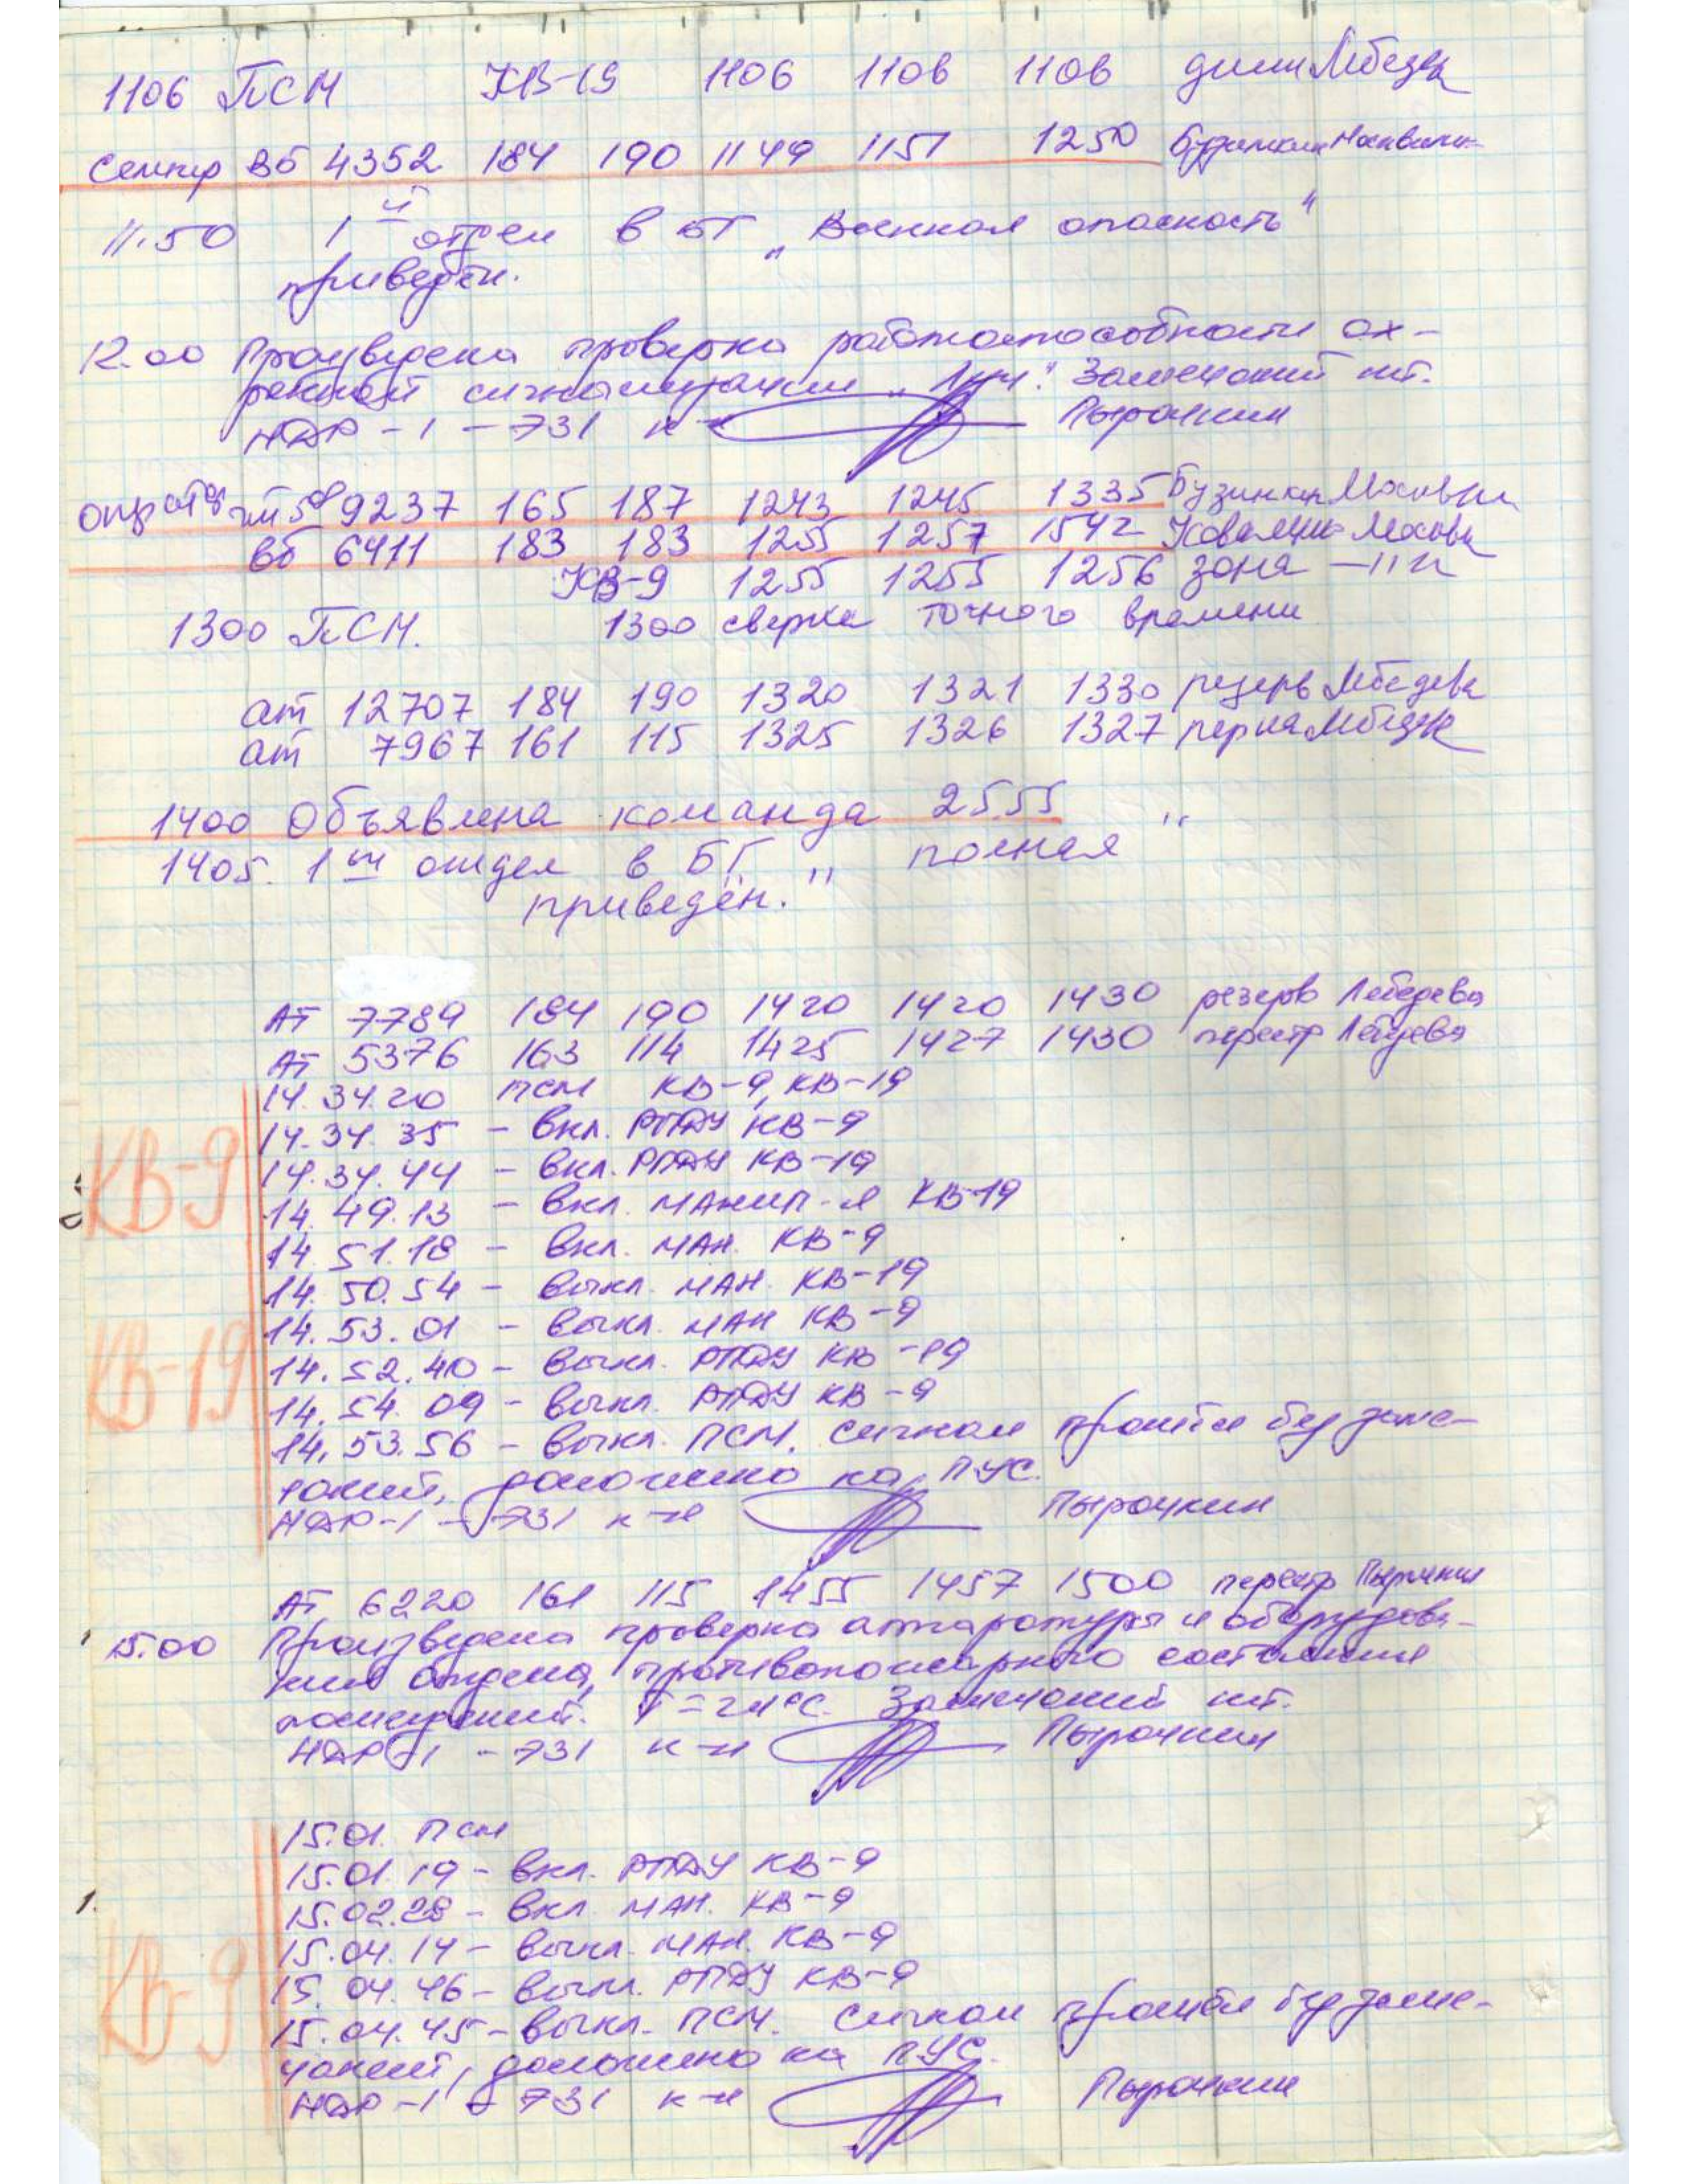 1106 ПСМ КВ-19 1106 1106 1106 Лебедев
Вб 4352 184 190 1149 1151 1250
11.50 1й отдел в БГ „Военная опасность"
приведён.
12.00 Произведена проверка работоспособности ох-
ранной сигнализации „Луч". Замечаний нет.
НДР-1 - 731 к-н Пырочкин
9237 165 187 1243 1245 1335 Бузинкин Москвин
Вб 6411 183 183 1255 1257 1542
КВ-9 1255 1255 1256 зона -"-
1300 ПСМ. 1300 сверка точного времени
ат 12707 184 190 1320 1321 1330 резерв Лебедева
ат 7967 161 115 1325 1326 1327
1400 Объявлена команда 2555
1405. 1ый отдел в БГ „полная"
приведён.
АТ 7789 184 190 1420 1420 1430 резерв Лебедева
АТ 5376 163 114 1425 1427 1430 перестр Лебедева
14.34.20 ПСМ КВ-9, КВ-19
14.34.35 - вкл. РПДУ КВ-9
КВ-9
14.34.44 - вкл. РПДУ КВ-19
14.49.13 - вкл. манип-я КВ-19
14.51.18 - вкл. ман. КВ-9
14.50.54 - выкл. ман. КВ-19
14.53.01 - выкл. ман КВ-9
КВ-19
14.52.40 - выкл. РПДУ КВ-19
14.54.09 - выкл. РПДУ КВ-9
14.53.56 - выкл. ПСМ. Сигнал прошёл без заме-
чаний, доложено на ПУС.
НДР-1 - 731 к-н Пырочкин
АТ 6220 161 115 1455 1457 1500 перестр Пырочкин
15.00 Произведена проверка аппаратуры и оборудова-
ния отдела, противопожарного состояния
помещений. T=24°C. Замечаний нет.
НДР-1 - 731 к-н Пырочкин
15.01. ПСМ
15.01.19 - вкл. РПДУ КВ-9
15.02.28 - вкл. ман. КВ-9
15.04.14 - выкл. ман. КВ-9
КВ-9
15.04.46 - выкл. РПДУ КВ-9
15.04.45 - выкл. ПСМ. Сигнал прошёл без заме-
чаний, доложено на ПУС.
НДР-1 - 731 к-н Пырочкин